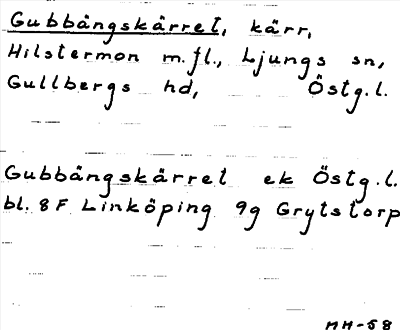 Gubbängskärret, kärr,
Hilstermon m.fl., Ljungs sn,
Gullbergs hd, Östg.l.
Gubbängskärret ek Östg.l.
bl. 8F Linköping 9g Grytstorp
MH-58